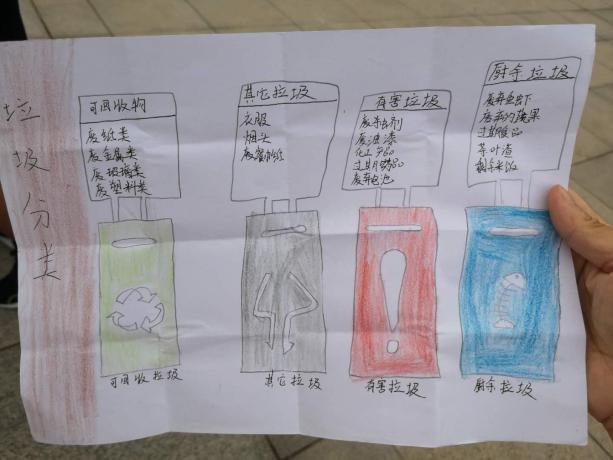 垃圾分类
可回收物
废纸类
废金属类
废玻璃类
废塑料类
可回收垃圾
其它垃圾
衣服
烟头
废餐巾纸
其它垃圾
有害垃圾
废杀虫剂
废油漆
化工产品
过期药品
废弃电池
有害垃圾
厨余垃圾
废弃鱼虾
废弃的蔬果
过期食品
茶叶渣
剩余米饭
厨余垃圾